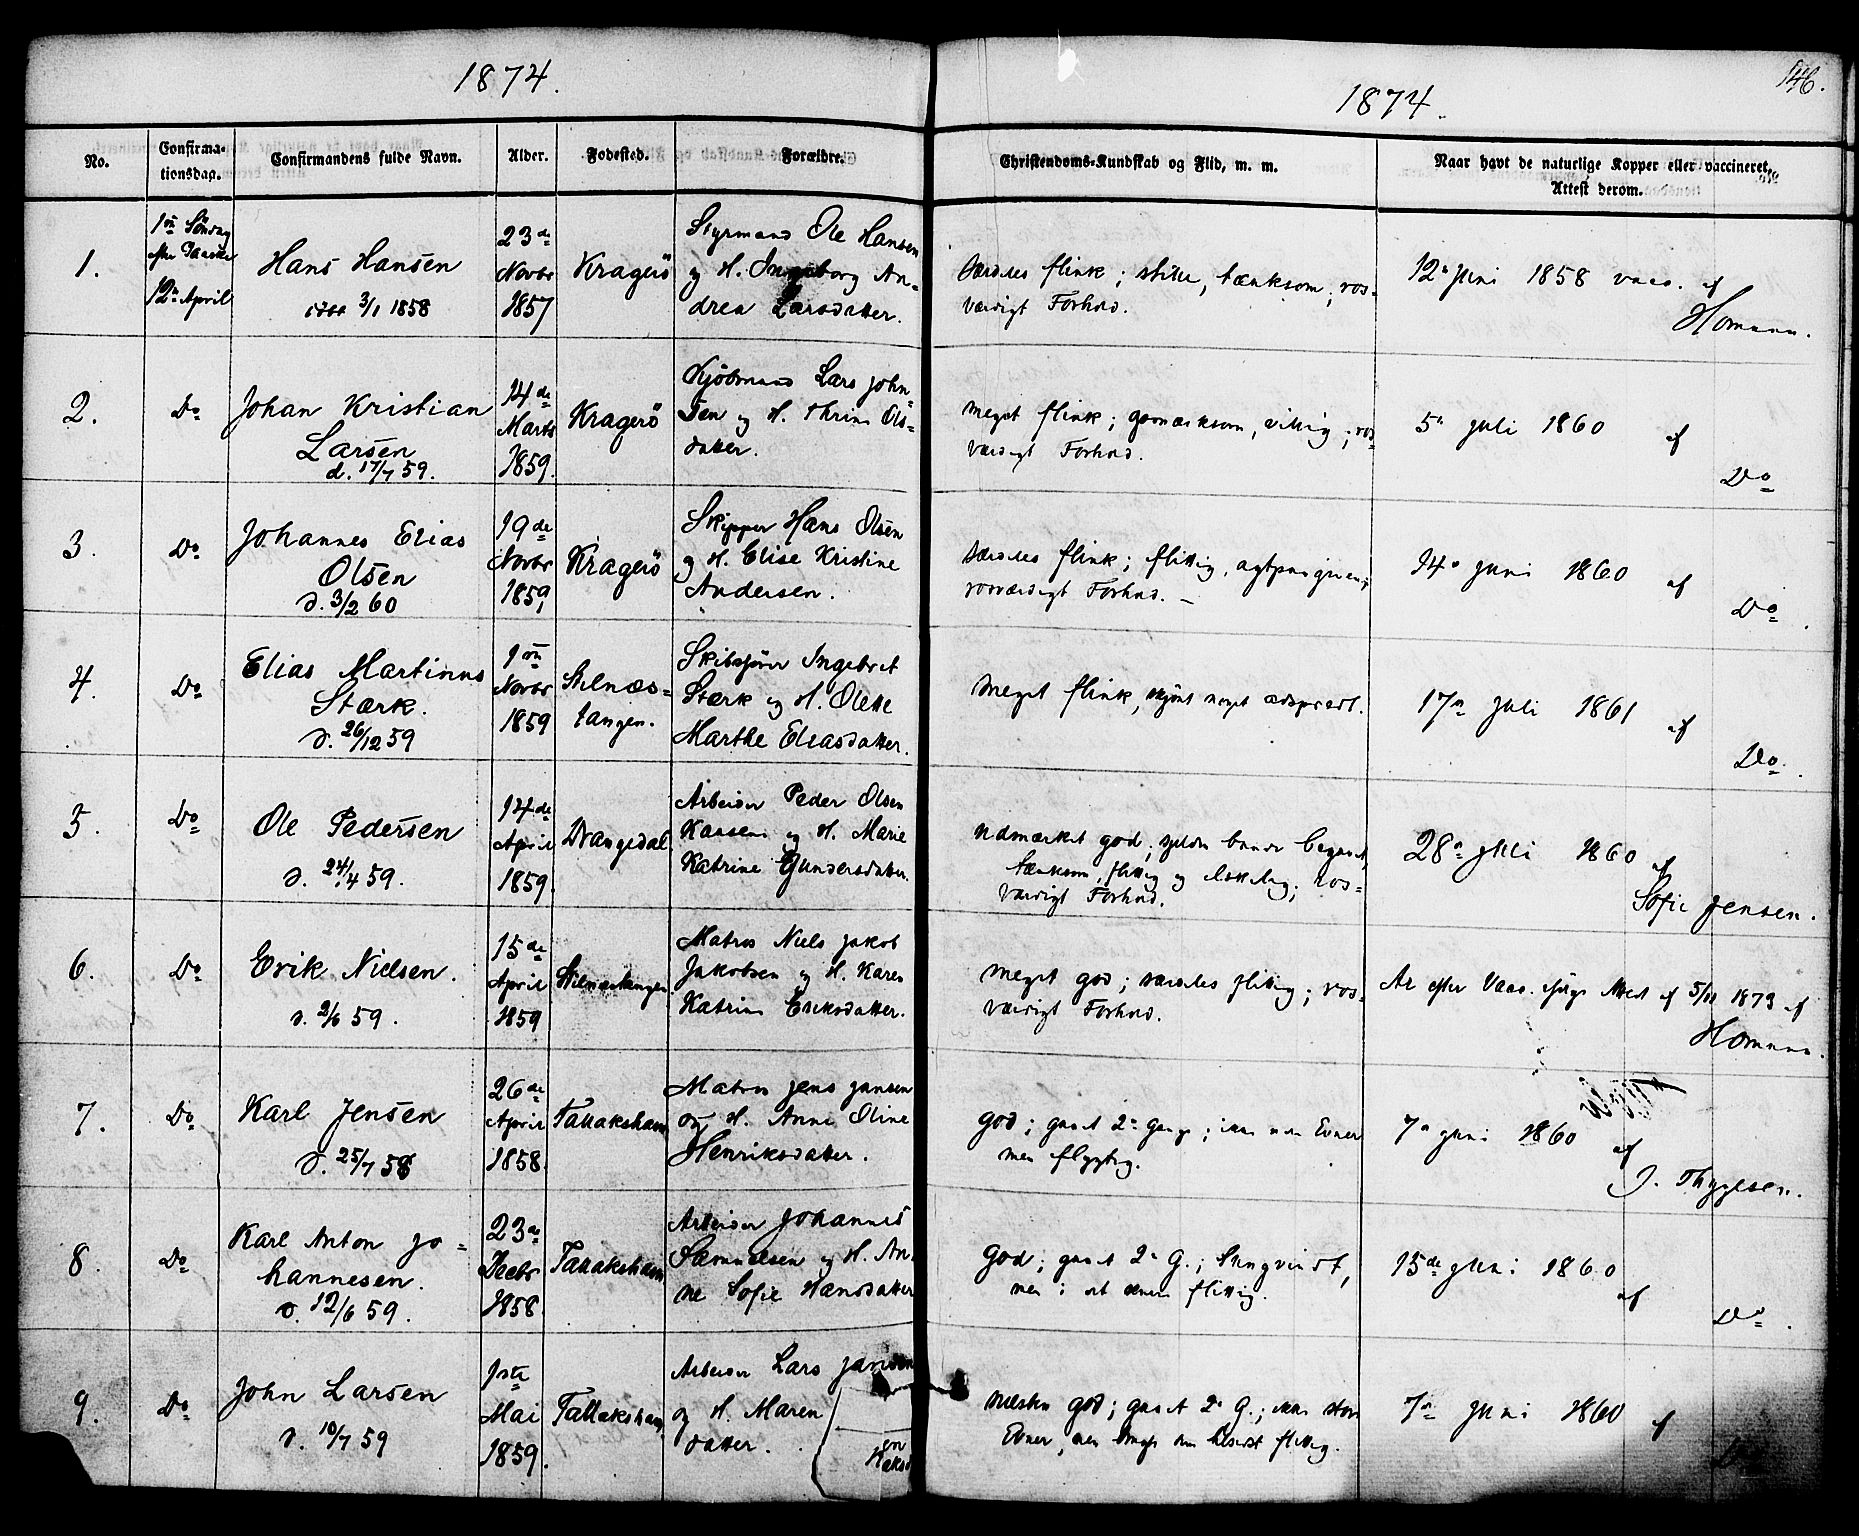 1874.
1874.
146.
No.
Confirma-
tionsdag.
Confirmandens fulde Navn.
Alder.
Fødested.
Forældre.
Christendoms-Kundskab og Flid, m. m.
Naar havt de naturlige Kopper eller vaccineret,
Attest derom.
1.
1ste Söndag
efter Paaske
12te April
Hans Hansen
3/1 1858
23de
Novbr
1857
Kragerö
Styrmand Ole Hansen
og H. Ingeborg An-
drea Larsdatter.
særdeles flink; stille, tænksom; ros-
værdigt Forhold.
12te Juni 1858 vacc. af
Homann.
2.
Do
Johan Kristian
Larsen
d. 17/7 59.
14de
Marts
1859.
Kragerö
Kjöbmand Lars John-
sen og H. Thrine Ols-
datter.
meget flink; opmærksom, villig; ros-
værdigt Forhold.
5te Juli 1860 af
Do
3.
Do
Johannes Elias
Olsen
d. 3/2 60
19de
Novbr
1859
Kragerö
Skipper Hans Olsen
og H. Elise Kristine
Andersen.
særdeles flink; flittig, agtpaagivende,
rosværdigt Forhold. —
14de Juni 1860 af
Do.
4.
Do
Elias Martinus
Stærk.
d. 26/12 59
1ste
Novbr
1859
Stilnæs-
tangen.
Skibsförer Ingebret
Stærk og H. Olette
Marthe Eliasdatter.
meget flink, skjönt noget adspredt.
17de Juli 1861 af
Do.
5.
Do
Ole Pedersen
d. 24/4 59.
14de
April
1859.
Drangedal
Arbeider Peder Olsen
Kaasene og H. Marie
Katrine Gundersdatter.
udmærket god; sjelden
tænksom, flittig og elskelig; ros-
værdigt Forhold.
28de Juli 1860 af
Sofie Jensen.
6.
Do
Erik Nielsen.
d. 2/6 59.
15de
April
1859
Stilnæstangen
Matros Niels Jakob
Jakobsen og H. Karen
Katrine Eriksdatter.
meget god; særdeles flittig; ros-
værdigt Forhold.
efter Vacc. ifölge Attest af 5/11 1873 af
Homann.
7.
Do
Karl Jensen
d. 25/7 58
26de
April
1858.
Tallakshavn
Matros Jens Jansen
og H. Anne Oline
Henriksdatter.
god; gaaet 2de Gange; ikke uden Evner
men flygtig.
7de Juni 1860 af
J. Thygesen.
8.
Do
Karl Anton Jo-
hannesen.
d. 12/6 59.
23de
Decbr
1858.
Tallakshavn
Arbeider Johannes
Samuelsen og H. An-
ne Sofie Hansdatter
god; gaaet 2de G.;
men i det hele flittig.
15de Juni 1860 af
Do.
9.
Do
John Larsen
d. 10/7 59
1ste
Mai
1859.
Tallakshavn
Arbeider Lars Jansen
og H. Maren
datter.
næsten god; gaaet 2de G.; ikke store
Evner, men flittig.
7de Juni 1860 af
Do